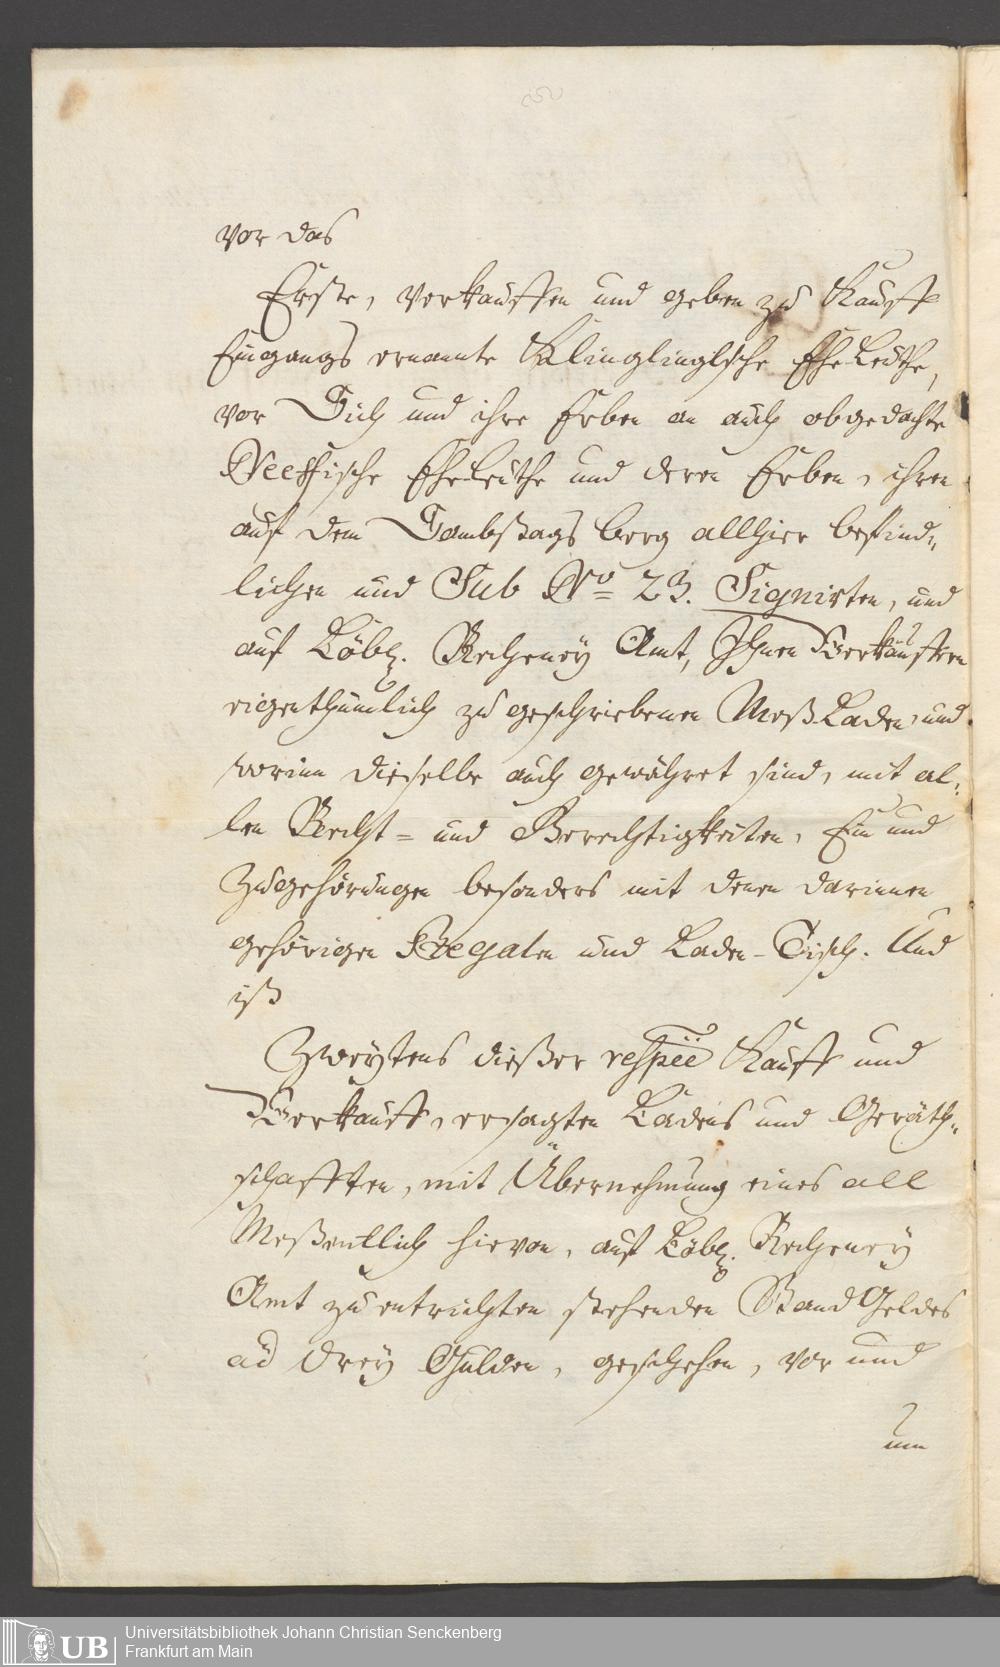 vor das
Erste, verkauffen und geben zu Kauff
Eingangs ernannte Klinglinglsche EheLeuthe,
vor Sich und ihre Erben an auch obgedachte
Neeffische EheLeuthe und deren Erben, ihren
auf dem Sambstags berg allhier befind„
lichen und Sub No 23. Signirten, und
auf Löbl. Recheney Amt, Ihnen Verkäuffern
eigenthümlich zu geschriebenen Meß-Laden, und
worinn dieselbe auch gewähret sind, mit al„
len Recht= und Gerechtigkeiten, Ein und
Zugehörungen besonders mit denen darinnen
gehörigen Regalen und Laden-Tisch. Und
ist
Zweytens dießer respée Kauff und
Verkauff, ersagten Ladens und Geräth„
schafften, mit Übernehmung eines all
Meßentlich hievon, auf Löbl. Recheney
Amt zu entrichten stehenden Stand Geldes
ad drey Gulden, geschehen, vor und
um
Universitätsbibliothek Johann Christian Senckenberg
Frankfurt am Main
UB